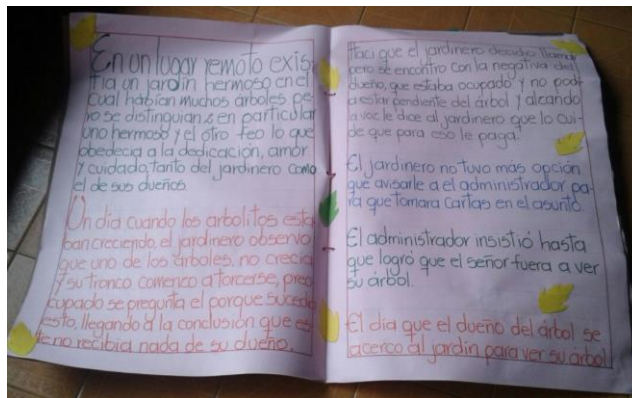 En un lugar remoto exis-
tia un jardin hermoso en el
cual habian muchos árboles pe-
ro se distinguian 2 en particular
uno hermoso y el otro feo lo que
obedecia a la dedicación, amor
y cuidado, tanto del jardinero como
el de sus dueños.
Un dia cuando los arbolitos esta-
ban creciendo, el jardinero observo
que uno de los árboles, no crecia
y su tronco comenco a torcerse, preo
cupado se pregunta el porque sucede
esto, llegando a la conclusión que es
te no recibia nada de su dueño.
Haci que el jardinero decidio llamar
pero se encontro con la negativa del
dueño, que estaba ocupado y no podi
a estar pendiente del árbol y alzando
la voz le dice al jardinero que lo cui-
de que para eso le paga.
El jardinero no tuvo más opción
que avisarle a el administrador pa-
ra que tomara cartas en el asunto.
El administrador insistió hasta
que logró que el señor fuera a ver
su árbol.
El dia que el dueño del árbol se
acerco al jardin para ver su árbol